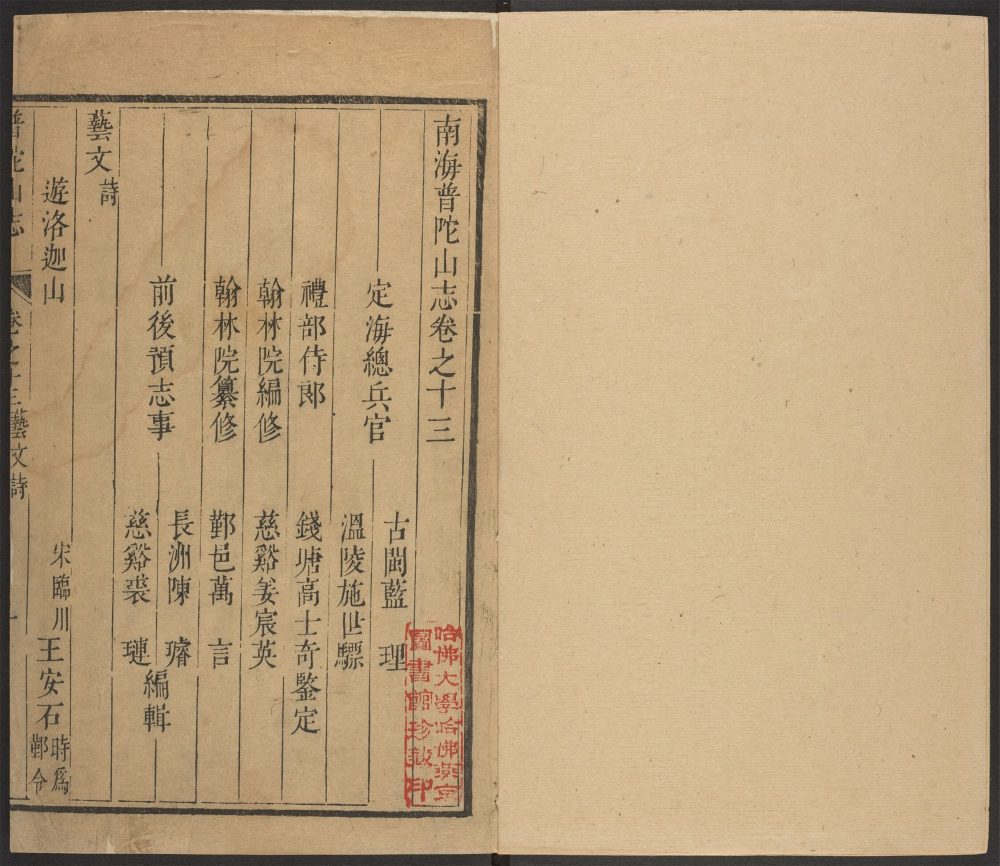 南海普陀山志卷之十三
定海總兵官
古閩藍 理
溫陵施世驃
禮部侍郎
錢塘高士奇鑒定
翰林院編修
慈谿姜宸英
翰林院纂修
鄞邑萬 言
前後預志事
長洲陳 璿
慈谿裘 璉
編輯
藝文詩
遊洛迦山
宋臨川王安石時爲鄞令
普陀山志
卷之十三藝文詩
一
哈佛大學哈佛燕京
圖書館珍藏印